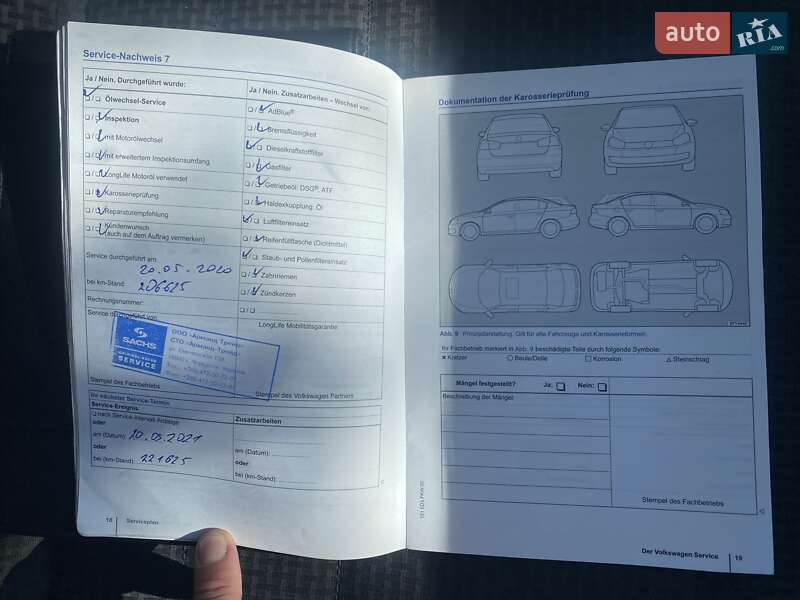 auto RIA .com
Service-Nachweis 7
Ja / Nein. Durchgeführt wurde:
Ölwechsel-Service
Inspektion
mit Motorölwechsel
mit erweitertem Inspektionsumfang
LongLife Motoröl verwendet
Karosserieprüfung
Reparaturempfehlung
Kundenwunsch
(auch auf dem Auftrag vermerken)
Service durchgeführt am:
20.05.2020
bei km-Stand: 206625
Rechnungsnummer:
Service durchgeführt von:
SACHS
SERVICE
ООО «Арманд Трейд»
СТО «Арманд-Трейд»
Stempel des Fachbetriebs
Ja / Nein. Zusatzarbeiten – Wechsel von:
AdBlue®
Bremsflüssigkeit
Dieselkraftstofffilter
Gasfilter
Getriebeöl: DSG®, ATF
Haldexkupplung: Öl
Luftfiltereinsatz
Reifenfüllflasche (Dichtmittel)
Staub- und Pollenfiltereinsatz
Zahnriemen
Zündkerzen
LongLife Mobilitätsgarantie
Stempel des Volkswagen Partners
Ihr nächster Service-Termin
Service-Ereignis
nach Service-Intervall-Anzeige
oder
am (Datum): 20.05.2021
oder
bei (km-Stand): 221625
Zusatzarbeiten
am (Datum):
oder
bei (km-Stand):
18 Serviceplan
Dokumentation der Karosserieprüfung
Abb. 9 Prinzipdarstellung. Gilt für alle Fahrzeuge und Karosserieformen.
Ihr Fachbetrieb markiert in Abb. 9 beschädigte Teile durch folgende Symbole:
Kratzer Beule/Delle Korrosion Steinschlag
Mängel festgestellt? Ja: Nein:
Beschreibung der Mängel:
Stempel des Fachbetriebs
Der Volkswagen Service 19